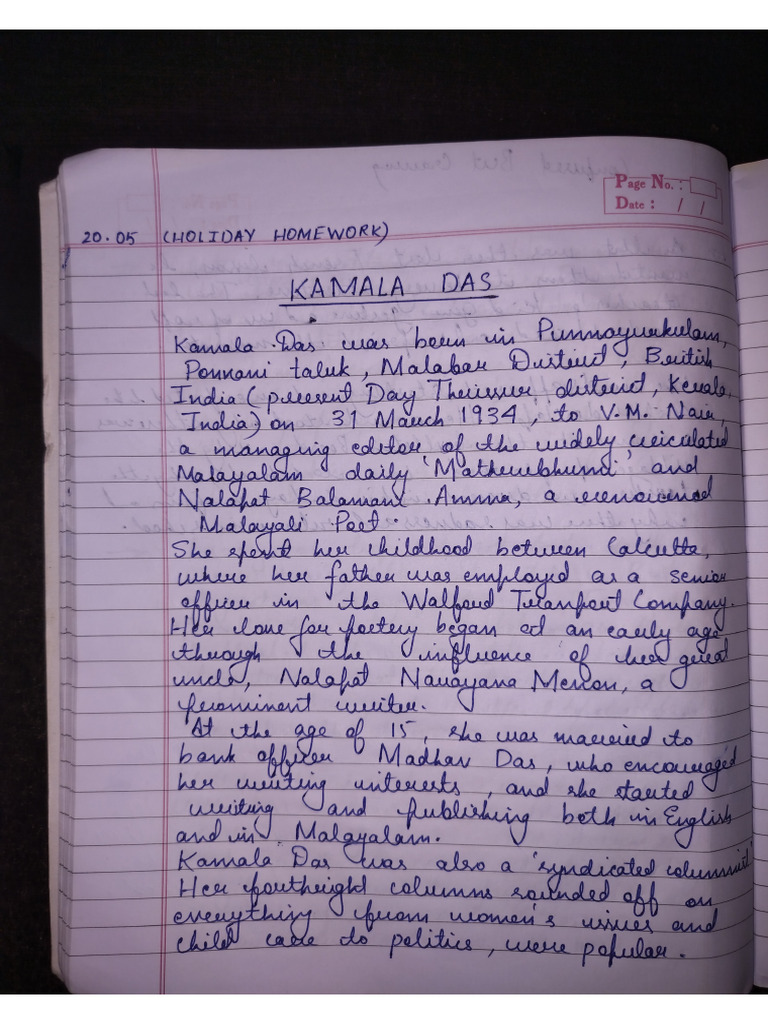 Page No. :
Date : / /
20.05 (HOLIDAY HOMEWORK)
KAMALA DAS
Kamala Das was born in Punnayurkulam,
Ponnani taluk, Malabar District, British
India (present Day Thrissur district, Kerala,
India) on 31 March 1934, to V.M. Nair,
a managing editor of the widely circulated
Malayalam daily 'Mathrubhumi' and
Nalapat Balamani Amma, a renowned
Malayali Poet.
She spent her childhood between Calcutta,
where her father was employed as a senior
officer in the Walford Transport Company.
Her love for poetry began at an early age
through the influence of her great
uncle, Nalapat Narayana Menon, a
prominent writer.
At the age of 15, she was married to
bank officer Madhav Das, who encouraged
her writing interests, and she started
writing and publishing both in English
and in Malayalam.
Kamala Das was also a 'syndicated columnist'.
Her fortright columns sounded off on
everything from women's issues and
child care to politics, were popular.